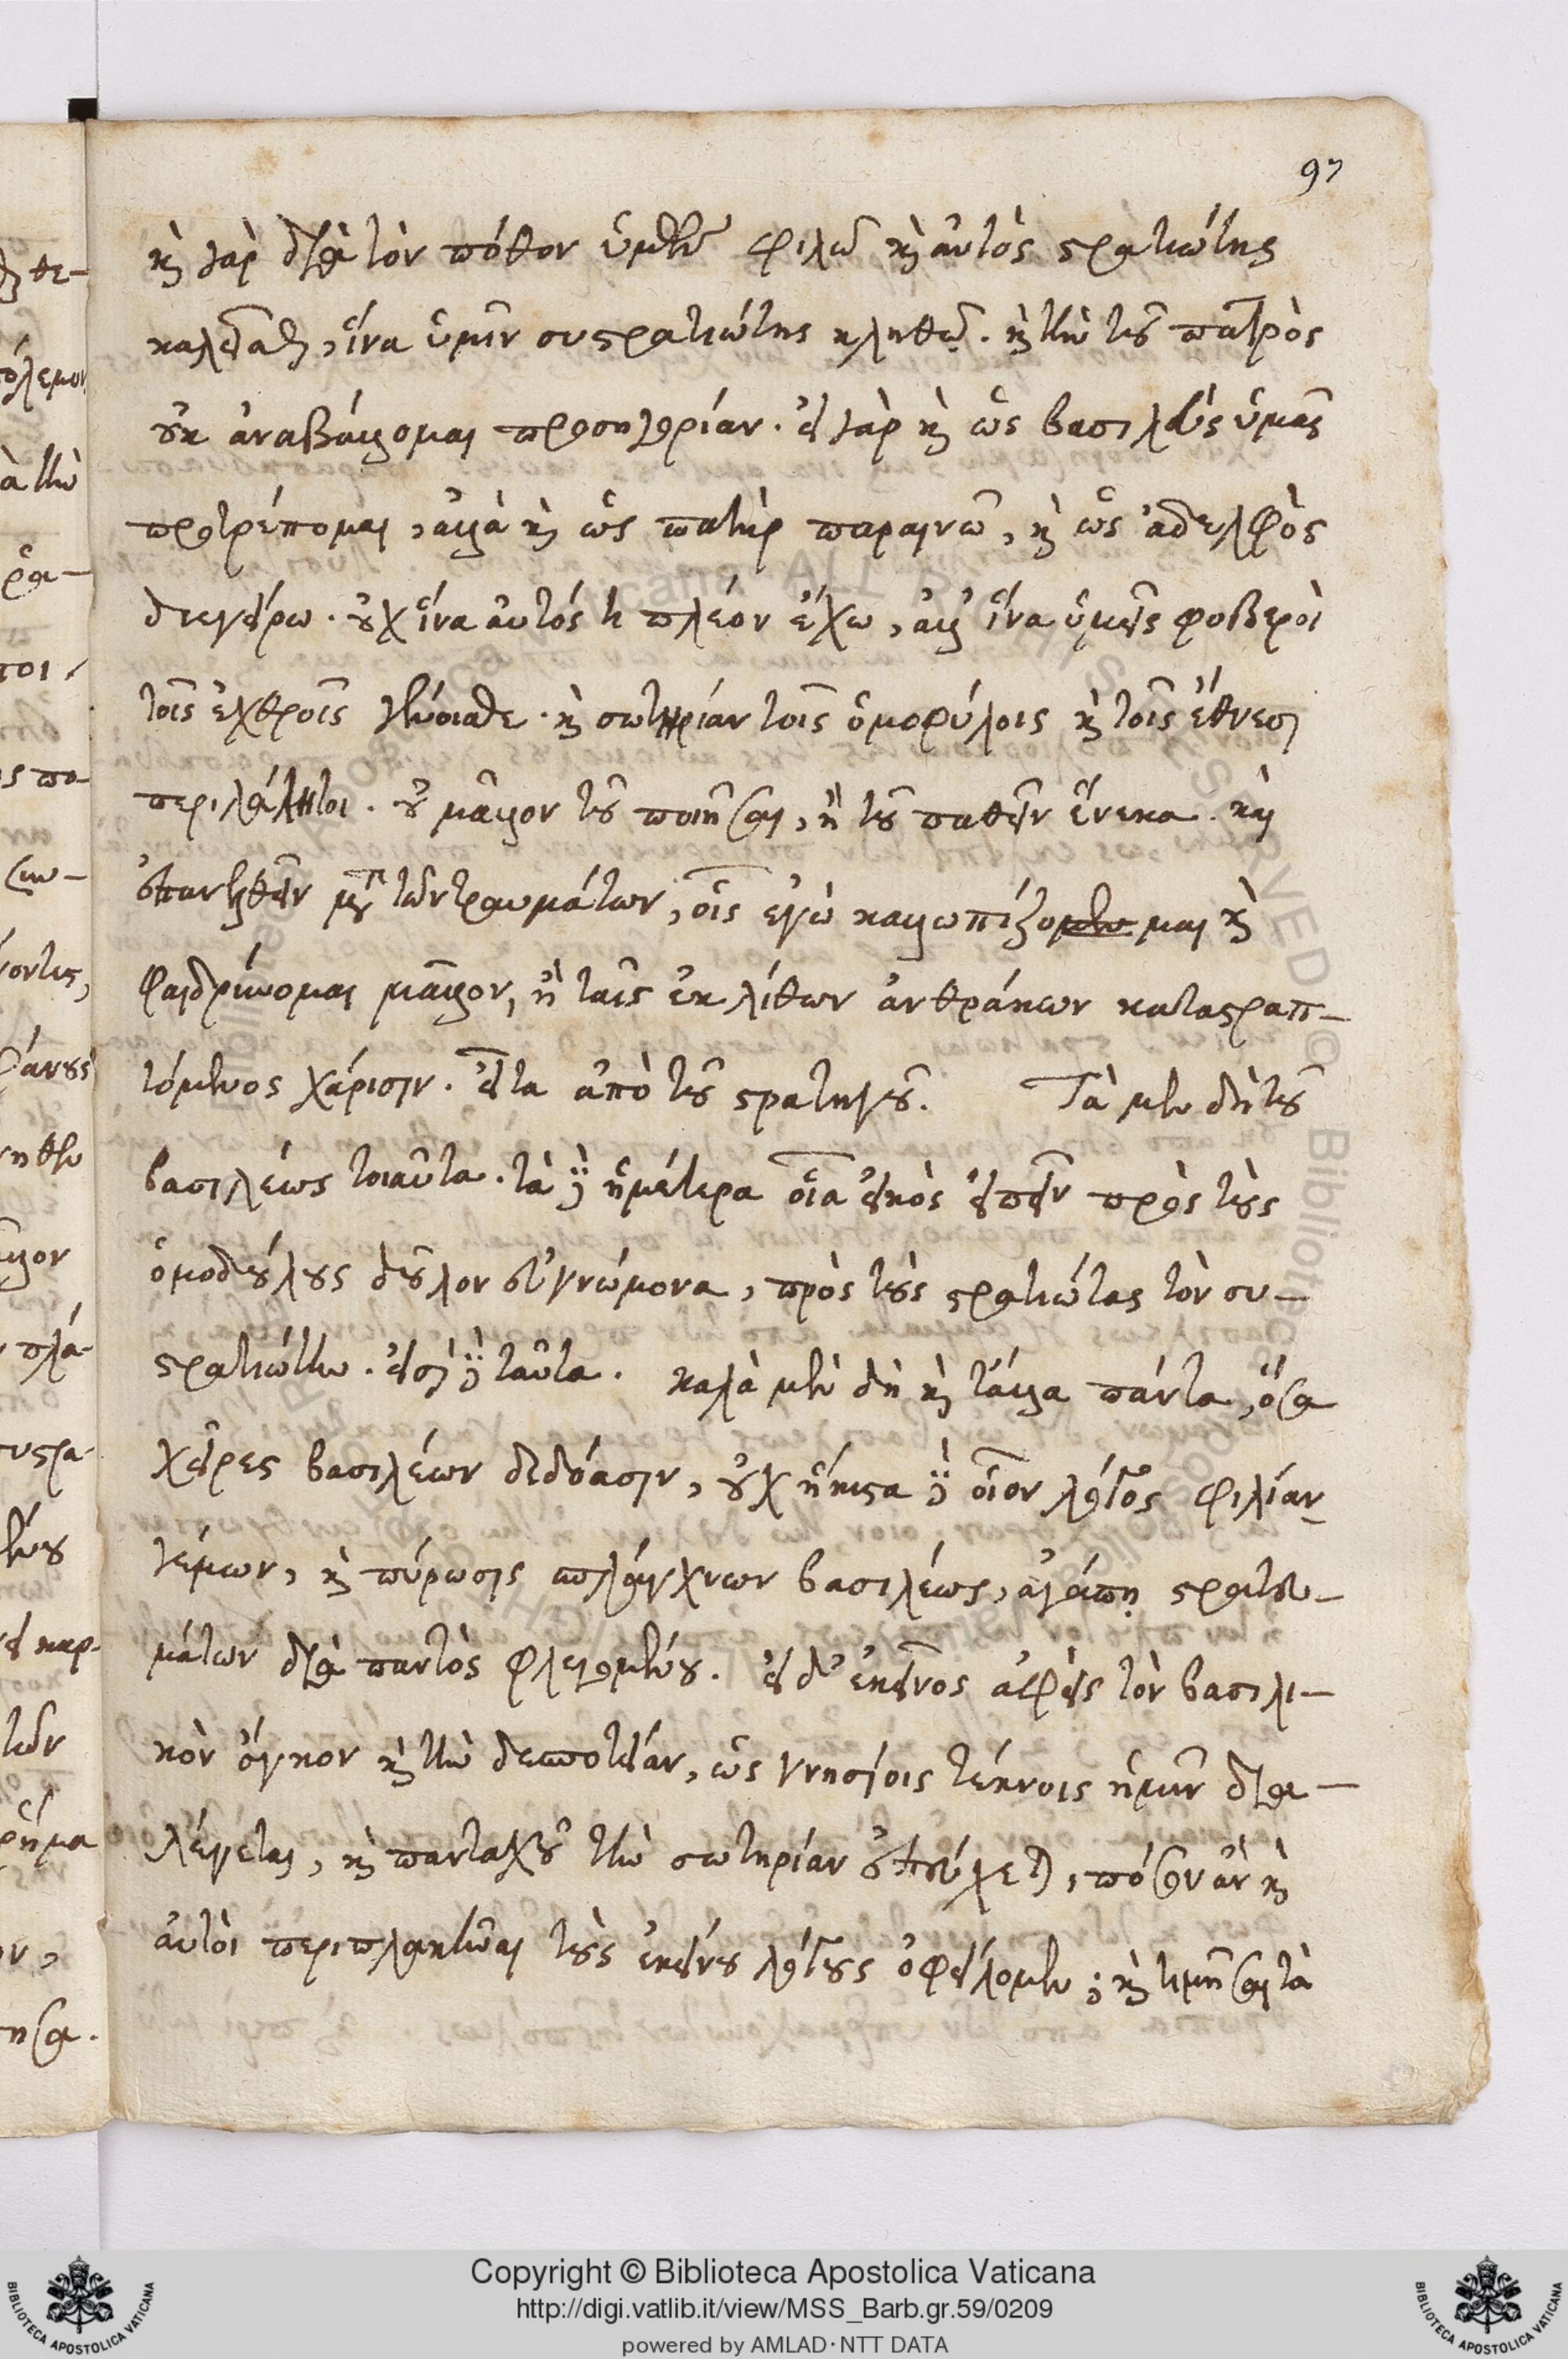 97
καὶ γὰρ διὰ τὸν πόθον ὑμῶν φιλῶ καὶ αὐτὸς στρατιώτης
καλεῖσθαι, ἵνα ὑμῖν συστρατιώτης κληθῶ. καὶ τὴν τοῦ πατρὸς
οὐκ ἀναβάλλομαι προσηγορίαν. εἰ γὰρ καὶ ὡς βασιλεὺς ὑμᾶς
προτρέπομαι, ἀλλὰ καὶ ὡς πατὴρ παραινῶ, καὶ ὡς ἀδελφὸς
διεγείρω. οὐχ ἵνα αὐτός τι πλέον ἔχω, ἀλλ' ἵνα ὑμεῖς φοβεροὶ
τοῖς ἐχθροῖς γένοισθε. καὶ σωτηρίαν τοῖς ὁμοφύλοις καὶ τοῖς ἔθνεσι
περιλάλητοι. οὐ μᾶλλον τοῦ ποιῆσαι, ἢ τοῦ παθεῖν ἕνεκα. καὶ
ἐπανελθεῖν μετὰ τῶν τραυμάτων, οἷς ἐγὼ καλλωπίζομαι καὶ
φαιδρύνομαι μᾶλλον, ἢ ταῖς ἐκ λίθων ἀνθράκων καταστραπ-
τόμενος χάρισιν. εἶτα ἀπὸ τοῦ στρατηγοῦ. Τὰ μὲν δὴ τοῦ
βασιλέως τοιαῦτα. τὰ δὲ ἡμέτερα οἷα εἰκὸς εἰπεῖν πρὸς τοὺς
ὁμοδούλους δοῦλον εὐγνώμονα, πρὸς τοὺς στρατιώτας τὸν συ-
στρατιώτην. εἰσὶ δὲ ταῦτα. καλὰ μὲν δὴ καὶ τἄλλα πάντα, ὅσα
χεῖρες βασιλέων διδόασιν, οὐχ ἥκιστα δὲ οἷον λόγος φιλίαν
γέμων, καὶ πύρωσις σπλάγχνων βασιλέως, ἀγάπῃ στρατευ-
μάτων διὰ παντὸς φλεγομένου. εἰ δ' ἐκεῖνος ἀφεὶς τὸν βασιλι-
κὸν ὄγκον καὶ τὴν δεσποτείαν, ὡς γνησίοις τέκνοις ἡμῖν δια-
λέγεται, καὶ πανταχοῦ τὴν σωτηρίαν ἐπεύχεται, πόσον ἂν καὶ
αὐτοὶ περιπλακῆναι τοὺς ἐκείνου λόγους ὀφείλομεν; καὶ τιμῆσαι τὰ
Copyright © Biblioteca Apostolica Vaticana
http://digi.vatlib.it/view/MSS_Barb.gr.59/0209
powered by AMLAD·NTT DATA